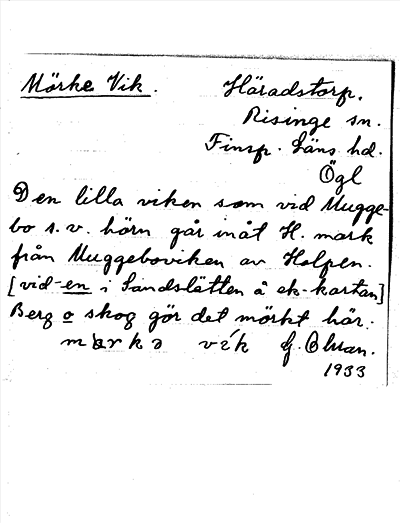 Mörke Vik. Häradstorp.
Risinge sn.
Finsp. Läns hd.
Ögl
Den lilla viken som vid Mugge-
bo s.v. hörn går inåt H. mark
från Muggeboviken av Holpen.
[vid -en i Sandslätten å ek-kartan]
Berg o skog gör det mörkt här.
mörkə vík G.
1933